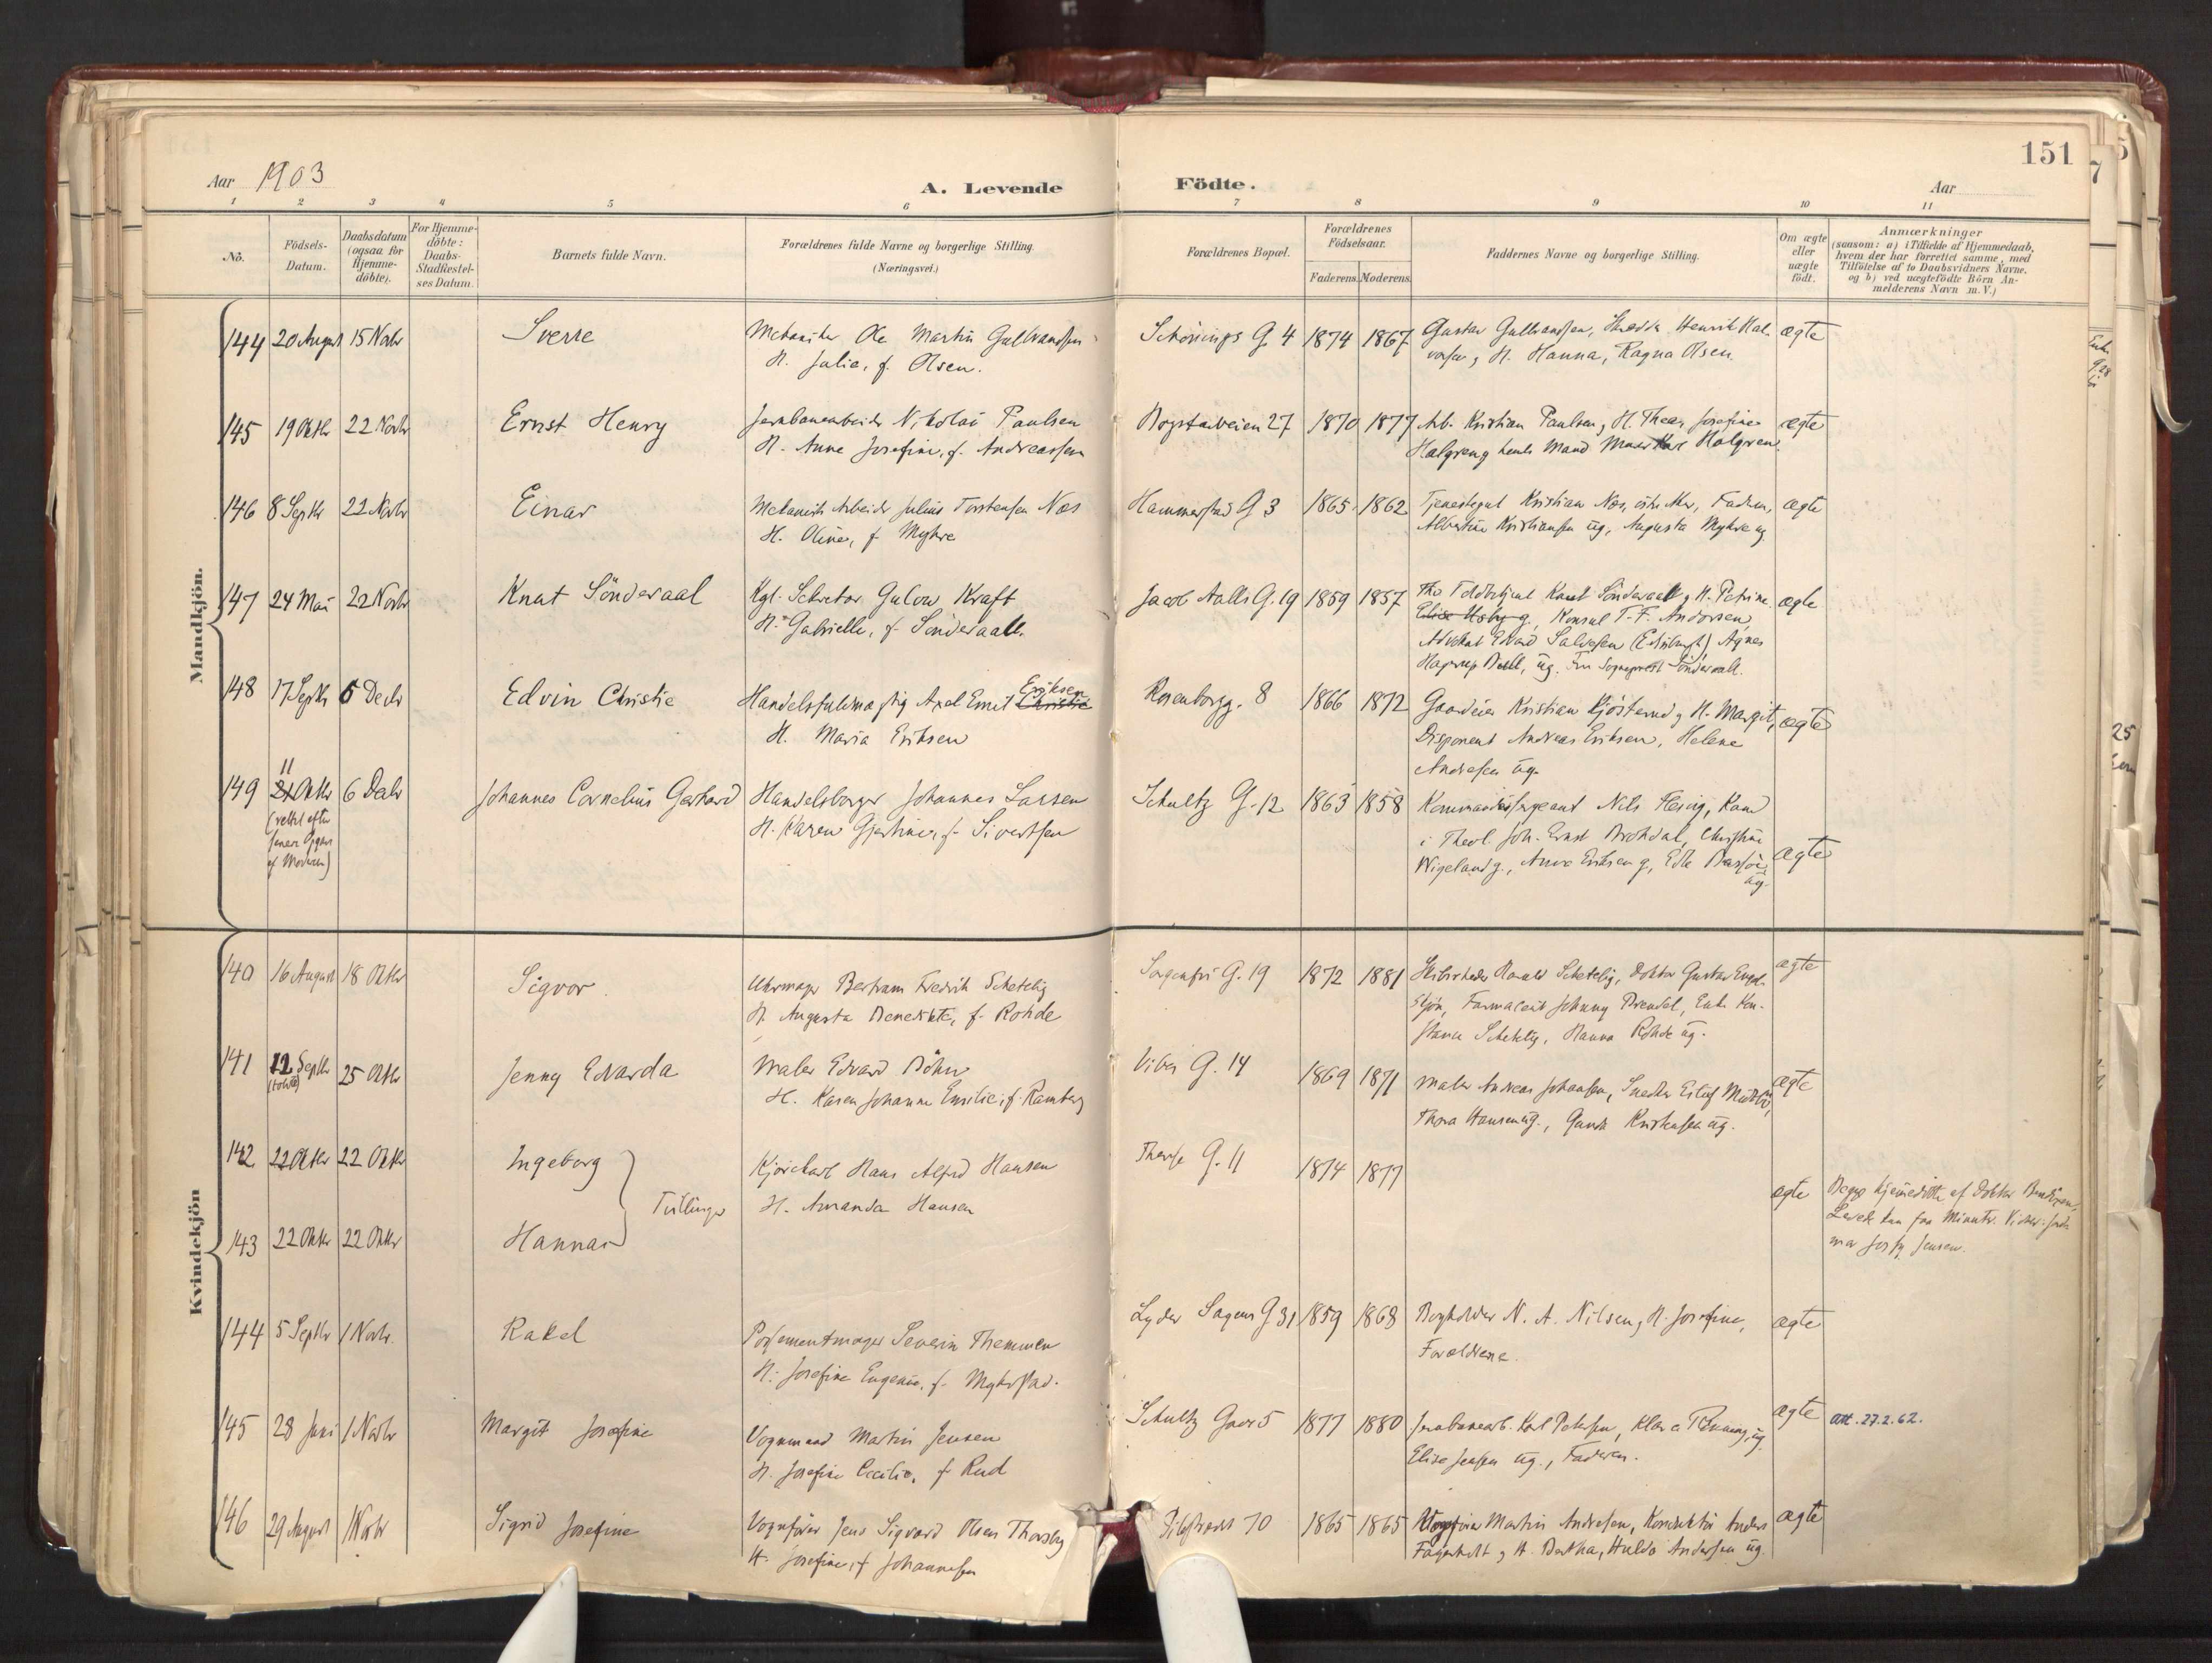 151
Aar 1903
A. Levende Födte.
Aar
1 2 3 4 5 6 7 8 9 10 11
No.
Födsels-Datum.
Daabsdatum (ogsaa for Hjemme-döbte).
For Hjemme-döbte: Daabs-Stadfæstel-ses Datum.
Barnets fulde Navn.
Forældrenes fulde Navne og borgerlige Stilling.
(Næringsvei.)
Forældrenes Bopæl.
Forældrenes Födselsaar.
Faderens. Moderens.
Faddernes Navne og borgerlige Stilling.
Om ægte eller uægte födt.
Anmærkninger
(saasom: a) i Tilfælde af Hjemmedaab, hvem der har forrettet samme, med Tilföielse af to Daabsvidners Navne, og b) ved uægtefödte Börn An-melderens Navn m. V.)
Mandkjön.
144 20 August 15 Novbr Sverre Mekaniker Ole Martin Gulbrandsen Schönings G. 4 1874 1867 Gustav Gulbrandsen, Henrik Hal- ægte
H. Julie, f. Olsen. vorsen, H. Hanna, Ragna Olsen.
145 19 Oktbr 22 Novbr Ernst Henry Jernbanearbeider Nikolai Paulsen Bogstadveien 27 1870 1877 Arb. Kristian Paulsen, H. Thea, Josefine ægte
H. Anne Josefine, f. Andreassen Holgren g hendes Mand Murer Karl Holgren.
146 8 Septbr 22 Novbr Einar Mekanisk Arbeider Julius Torstensen Næs Hammerstad G 3 1865 1862 Tjenestegut Kristian Næs, Fadren, ægte
H. Oline, f Myhre Albertine Kristiansen ug, Augusta Myhre ug
147 24 Mai 22 Novbr Knut Sönderaal Kgl. Sekretær Gulow Kraft Jacob Aalls G. 19 1859 1857 Knut Sönderaal, H. Petrine. ægte
H. Gabrielle, f. Sönderaal. Konsul T. F. Andorsen,
Advokat Edvard Salvesen (Edinburgh) Agnes
Hagerup Bull, ug. Fru Sogneprest Sönderaal.
148 17 Septbr 6 Decbr Edvin Christie Handelsfuldmægtig Axel Emil Christie Eriksen Rosenborgg. 8 1866 1872 Gaardeier Kristian Kjösterud, H. Margit, ægte
H. Maria Eriksen Disponent Andreas Eriksen, Helene
Andresen ug.
149 21 11 Oktbr 6 Decbr Johannes Cornelius Gerhard Handelsborger Johannes Larsen Schultz G. 12 1863 1858 Kommandersergeant Nils Hesing, Kand ægte
(rettet efter senere Opgave af Moderen) H. Karen Gjertine, f. Sivertsen i Theol. Joh. Ernst Brohdal, Christine
Wigeland g., Anna Eriksen g., Edle ug.
Kvindekjön
140 16 August 18 Oktbr Sigvor Uhrmager Bertram Fredrik Schetelig Sorgenfri G. 19 1872 1881 Skibsreder Harald Schetelig, Doktor Gustav ægte
H. Augusta Benedikte, f. Rohde Farmaceut Johnny Brendel, Enke Kon-
stance Schetelig, Hanna Rohde ug.
141 12 Septbr (tolvte) 25 Oktbr Jenny Edvarda Maler Edvard Böhn Vibes G. 14 1869 1871 Maler Andreas Johansen, Snedker Eiluf ægte
H. Karen Johanne Emilie, f. Ramberg Thora Hansen ug., Gunda Kristensen ug.
142 22 Oktbr 22 Oktbr Ingeborg Kjörekarl Hans Alfred Hansen Therese G. 11 1874 1877 ægte Begge hjemmedöbte af Doktor
Tvillinger H. Amanda Hansen Levede kun faa Minutter. Vidner: Jorde-
143 22 Oktbr 22 Oktbr Hanna mor Jensen.
144 5 Septbr 1 Novbr. Rakel Possementmager Severin Themmen Lyder Sagens G 31 1859 1868 N. A. Nilsen, H. Josefine, ægte
H. Josefine Eugenie, f. Forældrene.
145 28 Juni 1 Novbr Margit Josefine Vognmand Martin Jensen Schultz Gade 5 1877 1880 Jernbanearb. Karl Petersen, Klara Rönning, ug. ægte att. 27.2.62.
H. Josefine Cecilie, f Rud Elise Jensen ug., Faderen.
146 29 August 1 Novbr Sigrid Josefine Vognförer Jens Sigvard Olsen Thorsby Pilestrædet 70 1865 1865 Vognförer Martin Andresen, Konduktör Anders ægte
H. Josefine, f Johannesen Fagerholt, H. Berthea, Hulda Andersen ug.
25